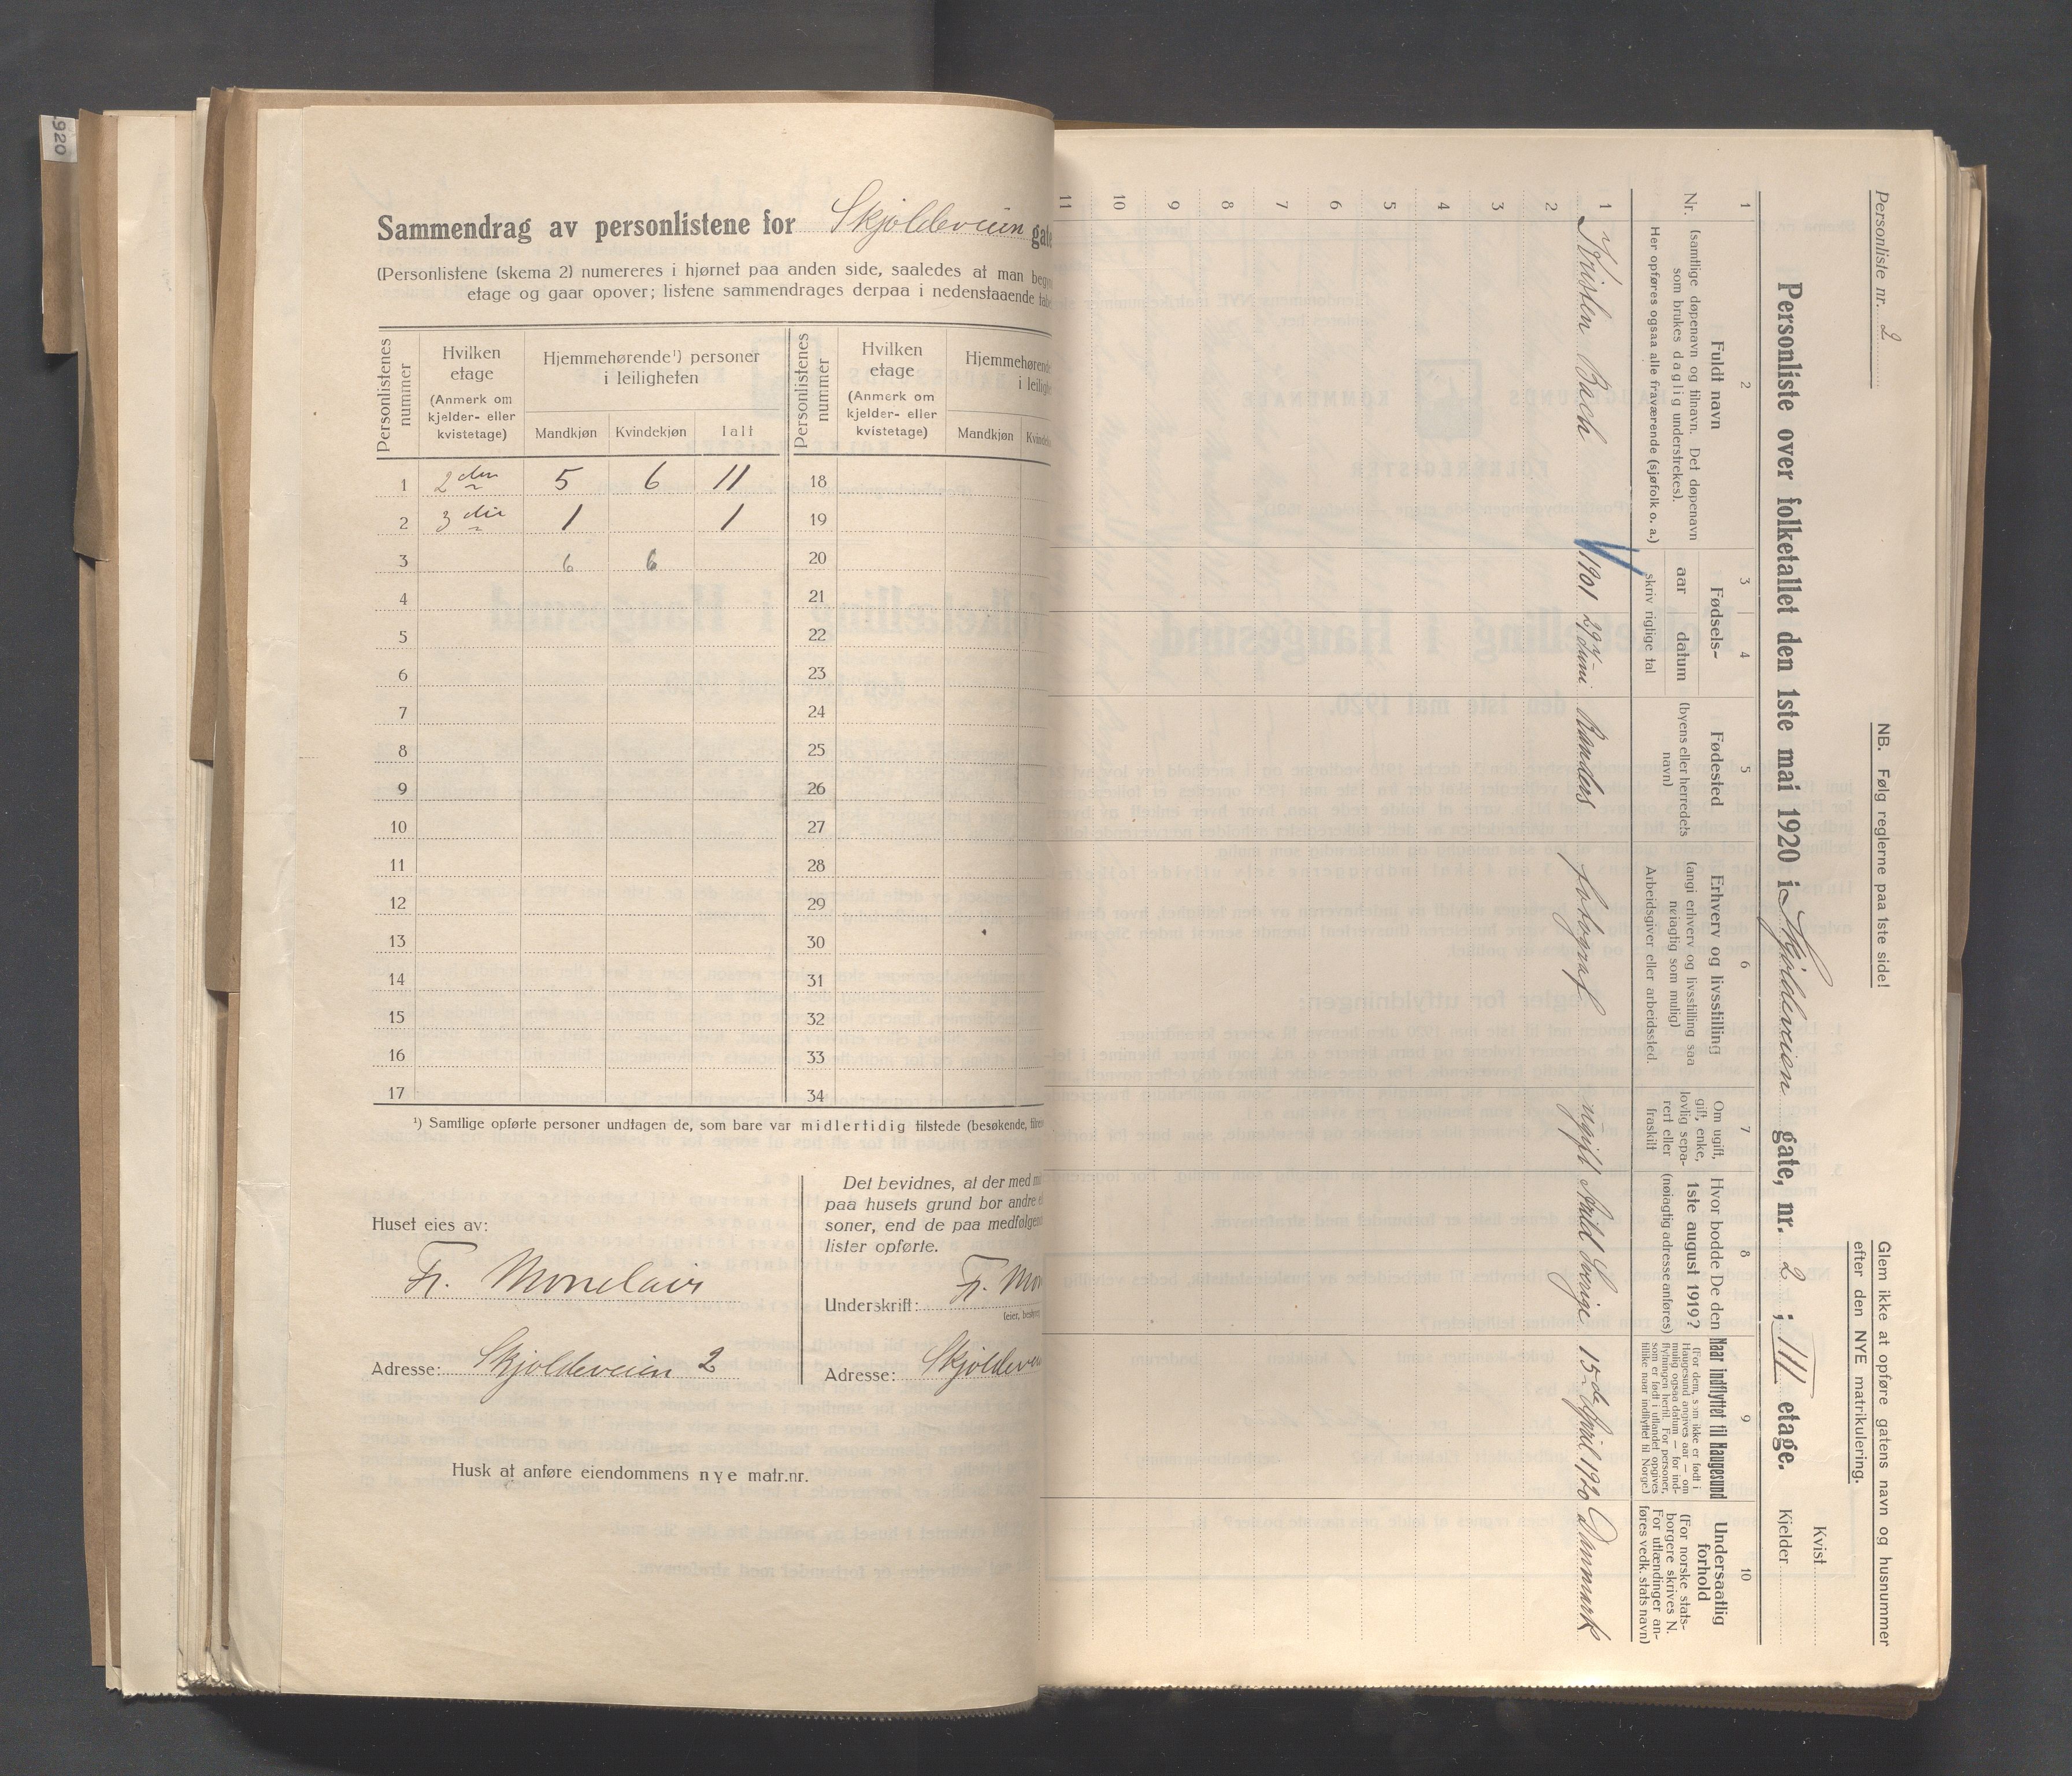 920
Sammendrag av personlistene for Skjoldeveien gate
(Personlistene (skema 2) numereres i hjørnet paa anden side, saaledes at man
etage og gaar opover; listene sammendrages derpaa i nedenstaaende
Personlistenes nummer
Hvilken etage (Anmerk om kjelder- eller kvistetage)
Hjemmehørende¹) personer i leiligheten
Mandkjøn Kvindekjøn Ialt
Personlistenes nummer
Hvilken etage (Anmerk om kjelder- eller kvistetage)
Hjemmehørende
i
Mandkjøn
1 2den 5 6 11 18
2 3die 1 1 19
3 6 6 20
4 21
5 22
6 23
7 24
8 25
9 26
10 27
11 28
12 29
13 30
14 31
15 32
16 33
17 34
¹) Samtlige opførte personer undtagen de, som bare var midlertidig tilstede (besøkende,
Huset eies av:
Fr. Monclair
Adresse: Skjoldeveien 2
Det bevidnes, at der med
paa husets grund bor andre
soner, end de paa medfølgen
lister opførte.
Underskrift: Fr. Mon
(eier,
Adresse: Skjoldeve
Husk at anføre eiendommens nye matr.nr.
Personliste nr. 2
NB. Følg reglerne paa 1ste side!
Glem ikke at opføre gatens navn og husnummer
efter den NYE matrikulering.
Kvist
Personliste over folketallet den 1ste mai 1920 i Skjoldeveien gate, nr. 2 ; III etage.
Kjelder
1 2 3 4 5 6 7 8 9 10
Nr.
Fuldt navn
(samtlige døpenavn og tilnavn. Det døpenavn
som brukes daglig understrekes).
Her opføres ogsaa alle fraværende (sjøfolk o. a.)
Fødsels-
aar datum
skriv rigtige tal
Fødested
(byens eller herredets
navn)
Erhverv og livsstilling
(angi erhverv og livsstilling saa
nøiagtig som mulig)
Arbeidsgiver eller arbeidssted.
Om ugift,
gift, enke,
lovlig sepa-
rert eller
fraskilt
Hvor bodde De den
1ste august 1919?
(nøiagtig adresse anføres)
Naar indflyttet til Haugesund
(For dem, som ikke er født i
Haugesund angives aar — om
mulig ogsaa datum — for ind-
flytningen hertil. For personer,
som er født i utlandet opgives
tillike naar indflyttet til Norge.)
Undersaatlig
forhold
(For norske stats-
borgere skrives N.
For utlændinger an-
føres vedk. stats navn)
1 Kristen Bach 1901 29 Juni Randers fotograf ugift Arild Sverige 15de April 1920 Danmark
2
3
4
5
6
7
8
9
10
11